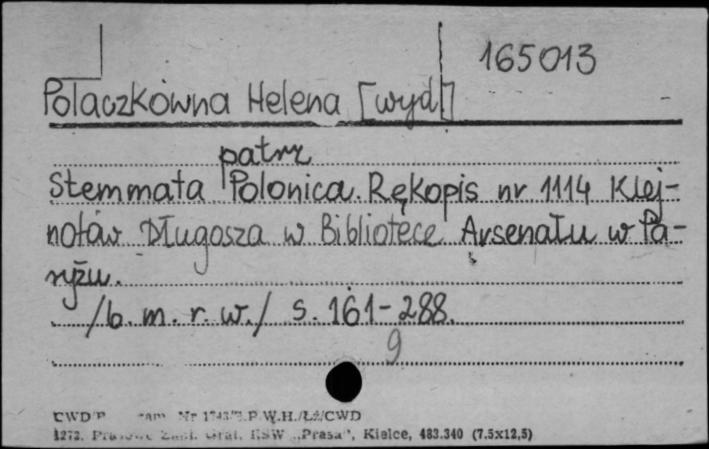 165013
Polaczkówna Helena [wyd]
patrz
Stemmata Polonica. Rękopis nr 1114 Klej-
notów Długosza w Bibliotece Arsenału w Pa-
ryżu.
/b. m. r. w./ s. 161-288.
9
CWD/P Nr P.W.H./Łź/CWD
1272. Zakł. Graf. RSW „Prasa", Kielce, 483.340 (7.5x12,5)